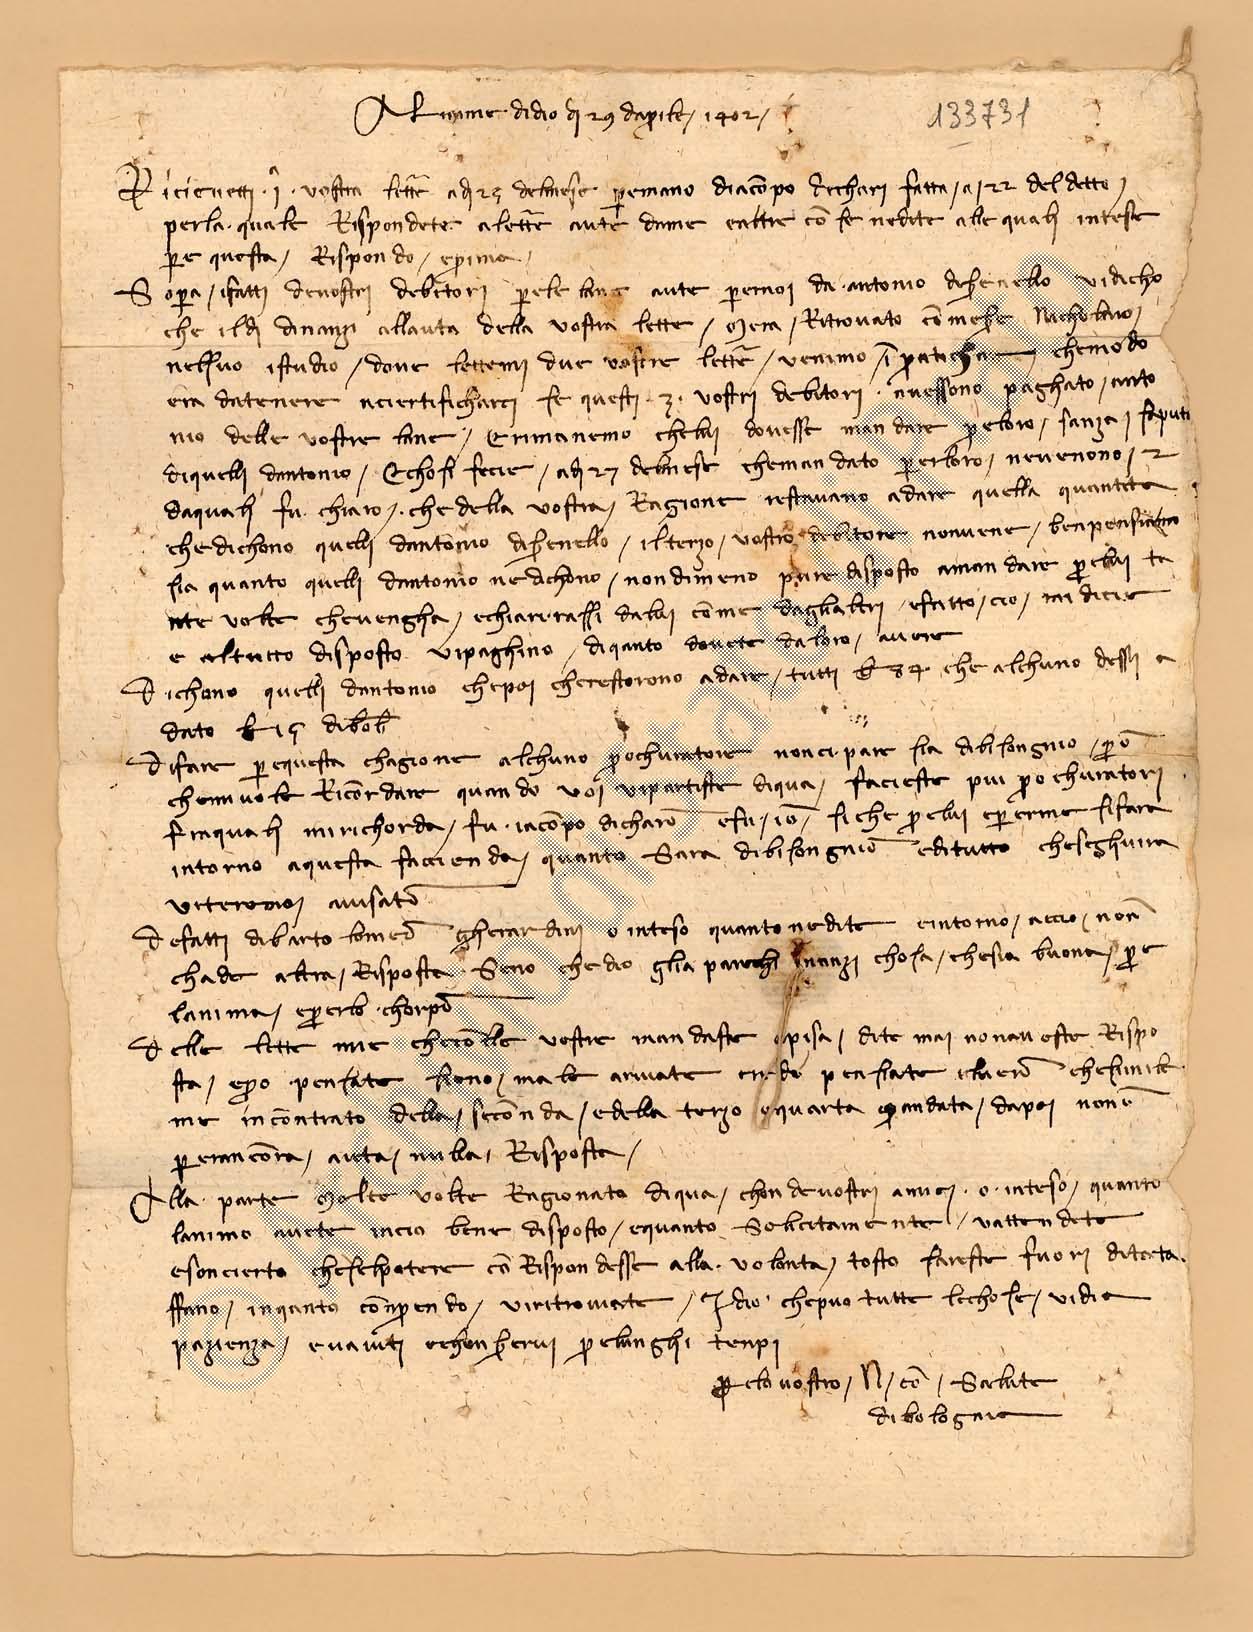 Al nome di dio dì 29 daprile / 1402 /
133731
Ricievetti · i · vostra lettera a dì 25 del mese per mano diacopo fatta / a / 22 del detto /
per la quale Rispondete a lettere aute da me e altre cose ne dite alle quali intese
per questa / Rispondo / e prima /
Sopra / i fatti de vostri debitori per le lane aute per noi da antonio vi dicho
che il dì dinanzi allauta della vostra lettera / mera / Ritrovato
nel suo istudio / dove lettemi due vostre lettere / venimo / in praticha che modo
era da tenere a ciertificharci se questi · 3 · vostri debitori · avessono paghato / anto
nio delle vostre lane / E rimanemo che lui dovesse mandare per loro / sanza / i saputi
di quelli dantonio / E chosì fecie / a dì 27 del mese che mandato per loro / ne venono / 2
da quali fu chiaro / che della vostra / Ragione restavano a dare quella quantità
che dichono quelli dantonio / il terzo / vostro debitore non vene / ben pensiamo
sia quanto quelli dantonio ne dichono / non di meno pure disposto a mandare per lui ta
nte volte che vengha / e chiarirassi da lui come dagli altri / e fatto / cio / mi dicie
e al tutto disposto vi paghino / di qanto dovete da loro / avere
Dichono quelli dantonio che poi che restorono a dare / tutti 84 che alchuno dessi a
dato 15 di bol
Di fare per questa chagione alchuno prochuratore non ci pare sia di bisongnio / però
che mi vole Ricordare quando voi vi partiste di qua / facieste piu prochuratori
fra quali mi richorda / fu · iacopo e fu / io / si che per lui e per me si farà
intorno a questa faccienda / quanto Sarà di bisongnio e di tutto che seghuirà
vi terremo avisato
De fatti di bartolomeo gherardini o inteso quanto ne dite e intorno / a ccio / non
chade altra / Risposta Se no che dio gli aparechi inanzi chosa / che sia buona / per
lanima / e per lo · chorpo
Delle lettere mie che colle vostre mandaste a pisa / dite mai non aveste Rispo
sta / e pero pensate sieno / male arivate credo pensiate il vero che simile
me incontrato della / seconda / e della terza e quarta mandata / da poi non ò
per ancora / auta / nulla / Risposta /
Alla parte molte volte Ragionato di qua / chon de vostri amici · o · inteso / quanto
lanimo avete in cio bene disposto / e quanto Solicitamente / vattendete
e son cierto che sel potere coRispondesse alla · volontà / tosto sareste fuori di
ffano / in quanto conprendo / vi ritrovate / Idio che puo tutte le chose / vi dia
pazienza / e vaiuti e chonservi per lunghi tenpi
per lo vostro / N / / Salute
di bolognia